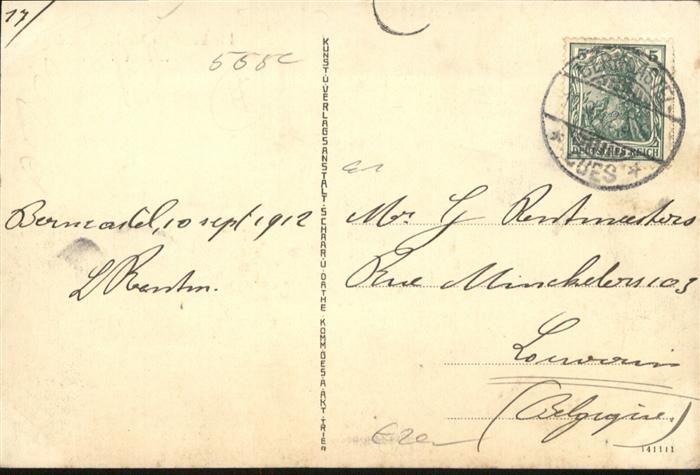 17/
555c
KUNST U. VERLAGSANSTALT SCHAAR U. DATHE KOMM.GES.A.AKT. TRIER
5 5
DEUTSCHES REICH
BERNCASTEL
CUES
Berncastel, 10 sept 1912
L Rentm.
Mr G Rentmeesters
Rue Minckelers 103
Louvain
(Belgique)
141111